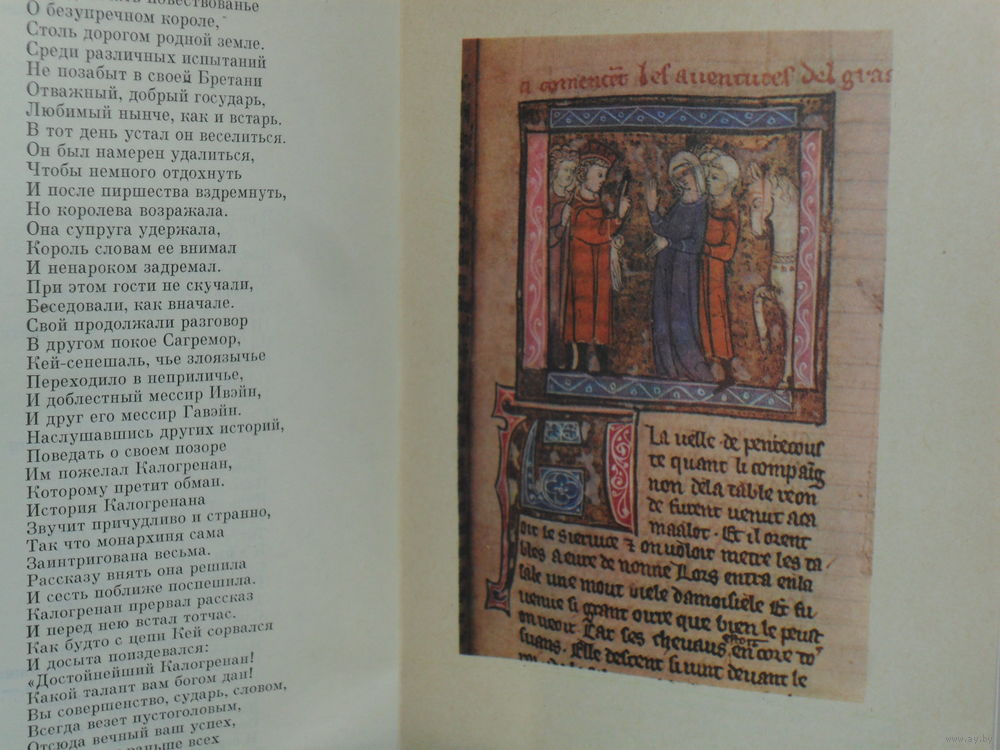 повествованье
О безупречном короле,
Столь дорогом родной земле.
Среди различных испытаний
Не позабыт в своей Бретани
Отважный, добрый государь,
Любимый нынче, как и встарь.
В тот день устал он веселиться.
Он был намерен удалиться,
Чтобы немного отдохнуть
И после пиршества вздремнуть,
Но королева возражала.
Она супруга удержала,
Король словам ее внимал
И ненароком задремал.
При этом гости не скучали,
Беседовали, как вначале.
Свой продолжали разговор
В другом покое Сагремор,
Кей-сенешаль, чье злоязычье
Переходило в неприличье,
И доблестный мессир Ивэйн,
И друг его мессир Гавэйн.
Наслушавшись других историй,
Поведать о своем позоре
Им пожелал Калогренан,
Которому претит обман.
История Калогренана
Звучит причудливо и странно,
Так что монархиня сама
Заинтригована весьма.
Рассказу внять она решила
И сесть поближе поспешила.
Калогренан прервал рассказ
И перед нею встал тотчас.
Как будто с цепи Кей сорвался
И досыта поиздевался:
«Достойнейший Калогренан!
Какой талант вам богом дан!
Вы совершенство, сударь, словом,
Всегда везет пустоголовым,
Отсюда вечный ваш успех,
раньше всех
comencēt les auentures del graa
La uelle de pentecous
te quant li compaig
non de la table reon
de furent uenut a ca
maalot. Et il orent
oit le seruice ⁊ on uoloit metre les ta
bles a eure de nonne Lors entra en la
sale une mout biele damoisiele Et fu
uenue si grant oirre que bien le peust
on ueoir. Car ses cheuaus estoit encore to
suans. Elle descent si uint deuant le
www.ay.by